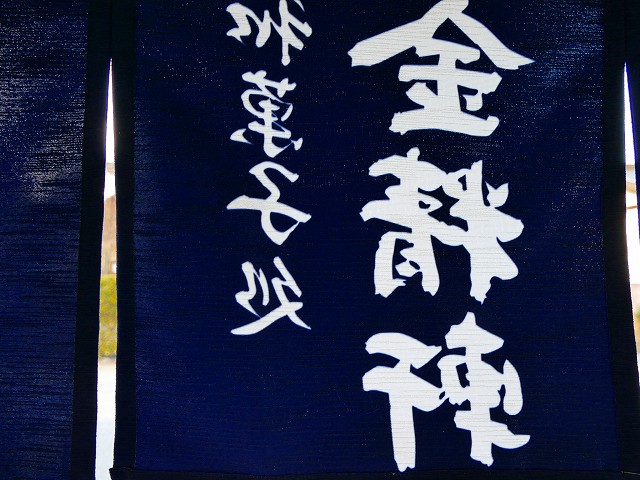 金精軒
菓子処